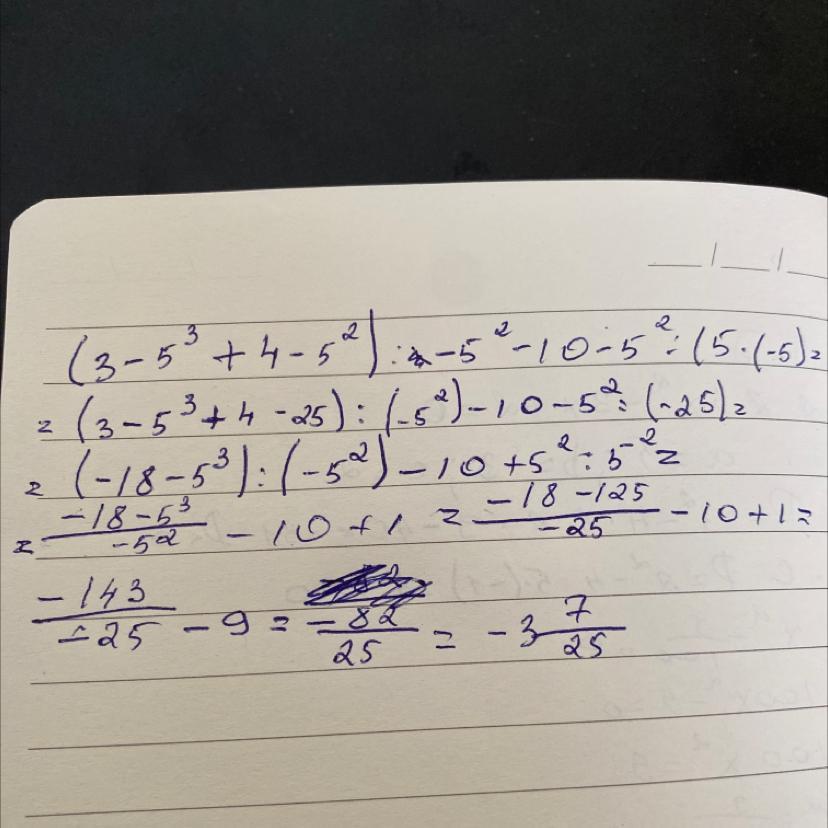 (3 - 5³ + 4 - 5²) : - 5² - 10 - 5² : (5 · (-5) =
= (3 - 5³ + 4 - 25) : (-5²) - 10 - 5² : (-25) =
= (-18 - 5³) : (-5²) - 10 + 5² : 5² =
= \frac{-18 - 5³}{-5²} - 10 + 1 = \frac{-18 - 125}{-25} - 10 + 1 =
\frac{-143}{-25} - 9 = \frac{-82}{25} = -3\frac{7}{25}